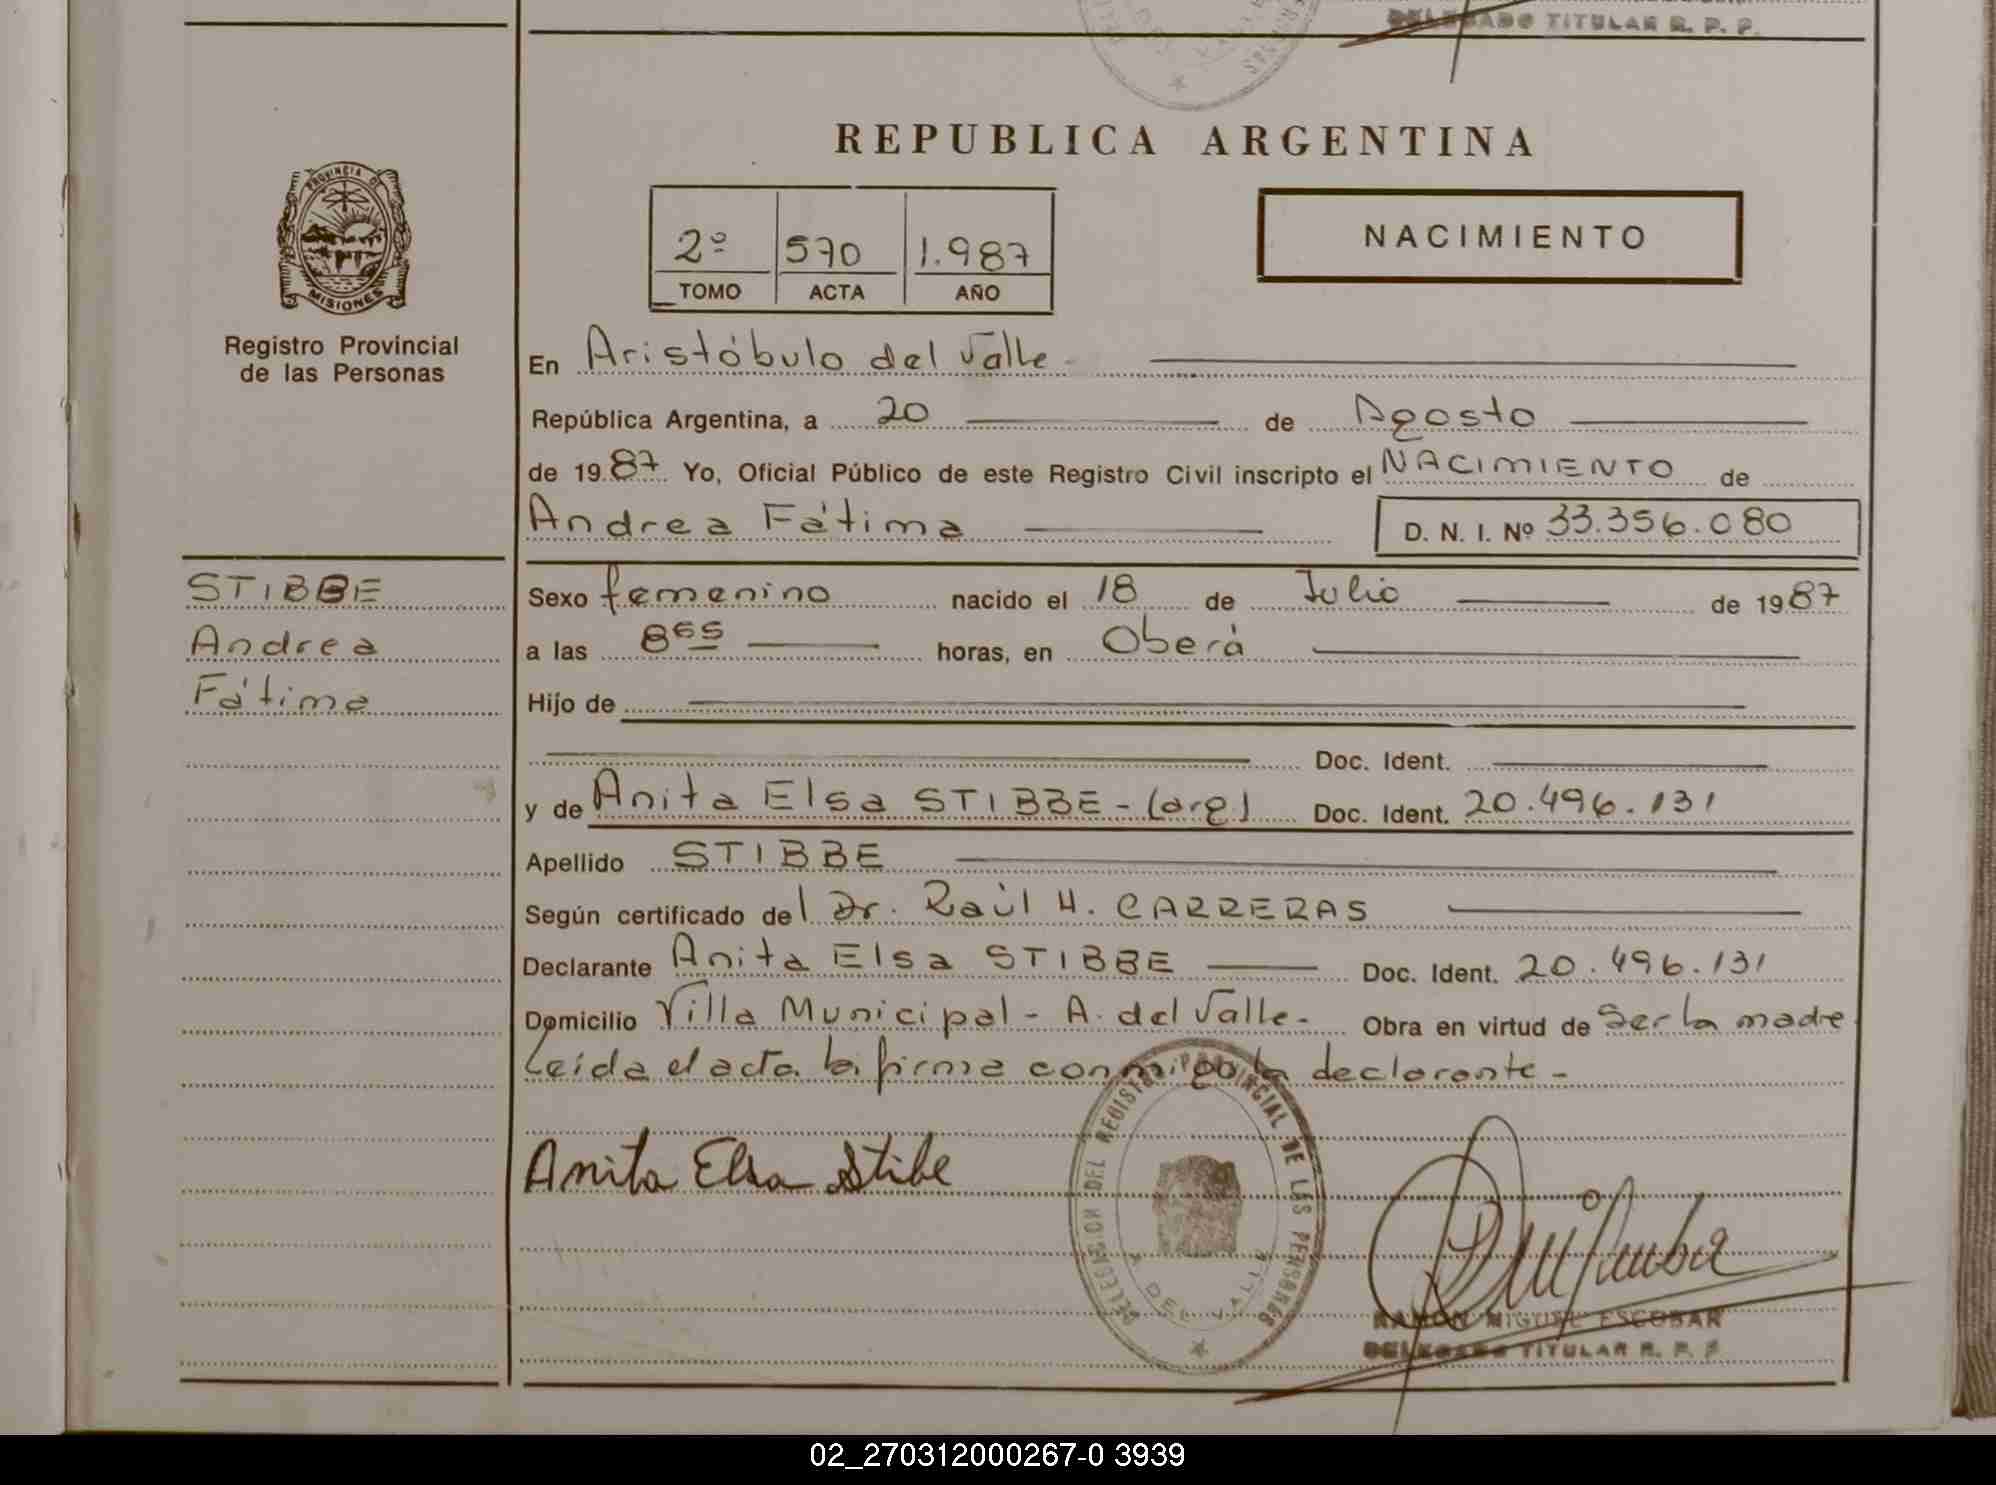 DELEGADO TITULAR R. P. P.
REPUBLICA ARGENTINA
PROVINCIA DE
MISIONES
Registro Provincial
de las Personas
2º 570 1.987
TOMO ACTA AÑO
NACIMIENTO
En Aristóbulo del Valle
República Argentina, a 20 de Agosto
de 1987 Yo, Oficial Público de este Registro Civil inscripto el NACIMIENTO de
Andrea Fátima D. N. I. Nº 33.356.080
STIBBE
Andrea
Fátima
Sexo femenino nacido el 18 de Julio de 1987
a las horas, en Oberá
Hijo de
Doc. Ident.
y de Anita Elsa STIBBE - (arg) Doc. Ident. 20.496.131
Apellido STIBBE
Según certificado del Dr. Raúl H. CARRERAS
Declarante Anita Elsa STIBBE Doc. Ident. 20.496.131
Domicilio Villa Municipal - A. del Valle - Obra en virtud de Ser la madre
Leída el acta la firma conmigo la declarante -
Anita Elsa Stibe
DELEGACION DEL REGISTRO PROVINCIAL DE LAS PERSONAS
A. DEL VALLE
RAMON MIGUEL ESCOBAR
DELEGADO TITULAR R. P. P.
02_270312000267-0 3939